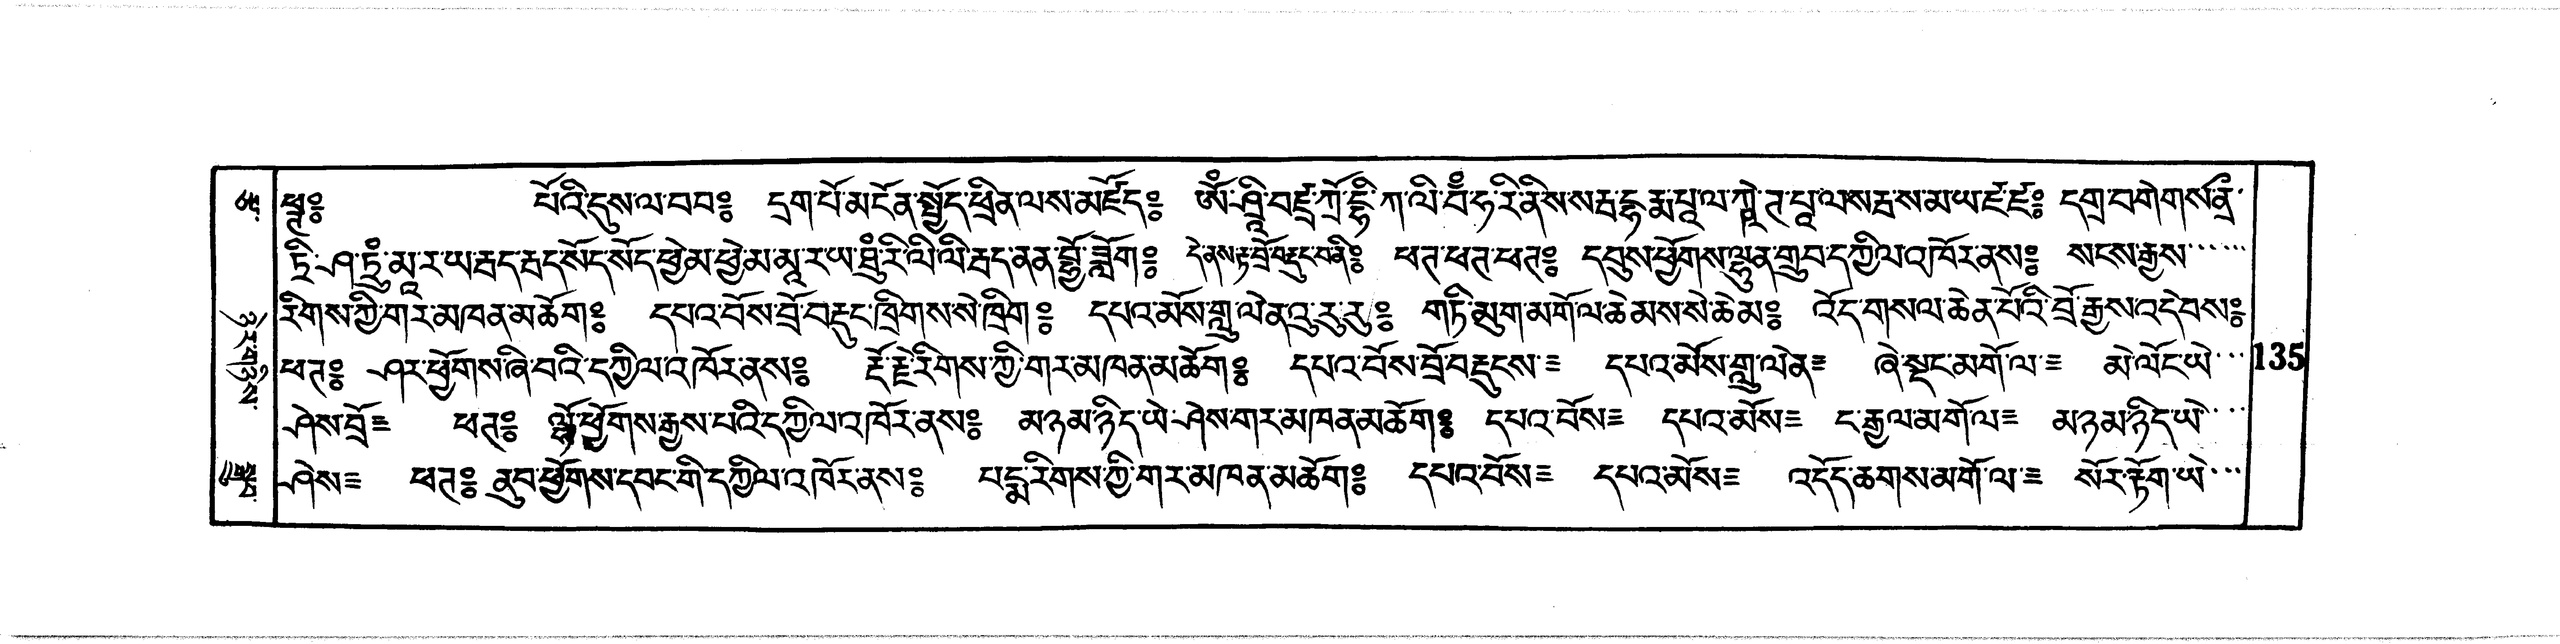 ཕཊ༔ པོའི་དུས་ལ་བབ༔ དྲག་པོ་མངོན་སྤྱོད་ཕྲིན་ལས་མཛོད༔ ཨོཾ་ཤྲཱི་བཛྲ་ཀྲོ་དྷཱི་ཀ་ལི་བཾ་ཧ་རི་ནིས་ས་རྦ་དྷ་རྨ་པཱ་ལ་ཀཱུ་ཊ་པཱ་ལ་སརྦ་ས་མ་ཡ་ཛཿཛཿ༔ དགྲ་བགེགས་ནྲྀ་
ཏྲི་ཤ་ཏྲཾ་མཱ་ར་ཡ་རྦད་རྦད་སོད་སོད་ཕྱེམ་ཕྱེམ་མཱ་ར་ཡ་ཐུཾ་རི་ལི་ལི་རྦད་ནན་བྷྱོ་ཟློག༔ དེ་ནས་རྟ་བྲོ་བརྡུང་བནི༔ ཕཊ་ཕཊ་ཕཊ༔ དབུས་ཕྱོགས་ལྷུན་གྲུབ་དཀྱིལ་འཁོར་ནས༔ སངས་རྒྱས
རིགས་ཀྱི་གར་མཁན་མཆོག༔ དཔའ་བོས་བྲོ་བརྡུང་ཁྲིགས་སེ་ཁྲིག༔ དཔའ་མོས་གླུ་ལེན་འུ་རུ་རུ༔ གཏི་མུག་མགོ་ལ་ཆེམས་སེ་ཆེམ༔ འོད་གསལ་ཆེན་པོའི་བྲོ་རྒྱས་འདེབས༔
ཕཊ༔ ཤར་ཕྱོགས་ཞི་བའི་དཀྱིལ་འཁོར་ནས༔ རྡོ་རྗེ་རིགས་ཀྱི་གར་མཁན་མཆོག༔ དཔའ་བོས་བྲོ་བརྡུངས་༴ དཔའ་མོས་གླུ་ལེན༴ ཞེ་སྡང་མགོ་ལ་༴ མེ་ལོང་ཡེ
ཤེས་བྲོ༴ ཕཊ༔ ལྷོ་ཕྱོགས་རྒྱས་པའི་དཀྱིལ་འཁོར་ནས༔ མཉམ་ཉིད་ཡེ་ཤེས་གར་མཁན་མཆོག༔ དཔའ་བོས༴ དཔའ་མོས༴ ང་རྒྱལ་མགོ་ལ༴ མཉམ་ཉིད་ཡེ
ཤེས༴ ཕཊ༔ ནུབ་ཕྱོགས་དབང་གི་དཀྱིལ་འཁོར་ནས༔ པདྨ་རིགས་ཀྱི་གར་མཁན་མཆོག༔ དཔའ་བོས༴ དཔའ་མོས༴ འདོད་ཆགས་མགོ་ལ་༴ སོར་རྟོག་ཡེ
135